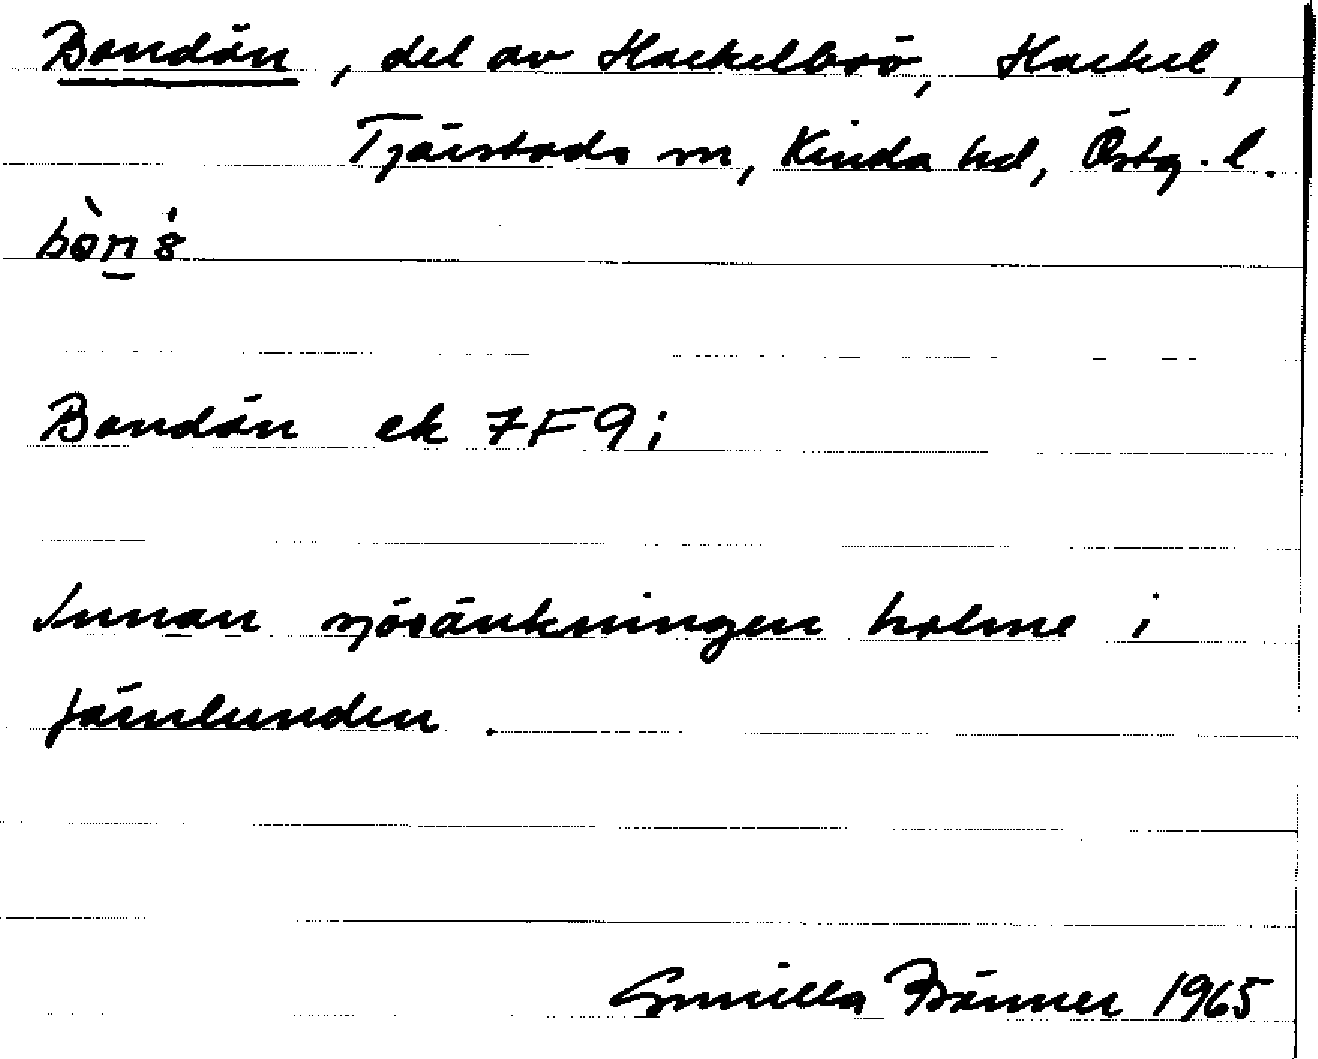 Bondön, del av Hackelboö, Hackel,
Tjärstads sn, Kinda hd, Östg. l.
Bondön ek 7F9i
Innan sjösänkningen holme i
Järnlunden.
Gunilla Bränner 1965